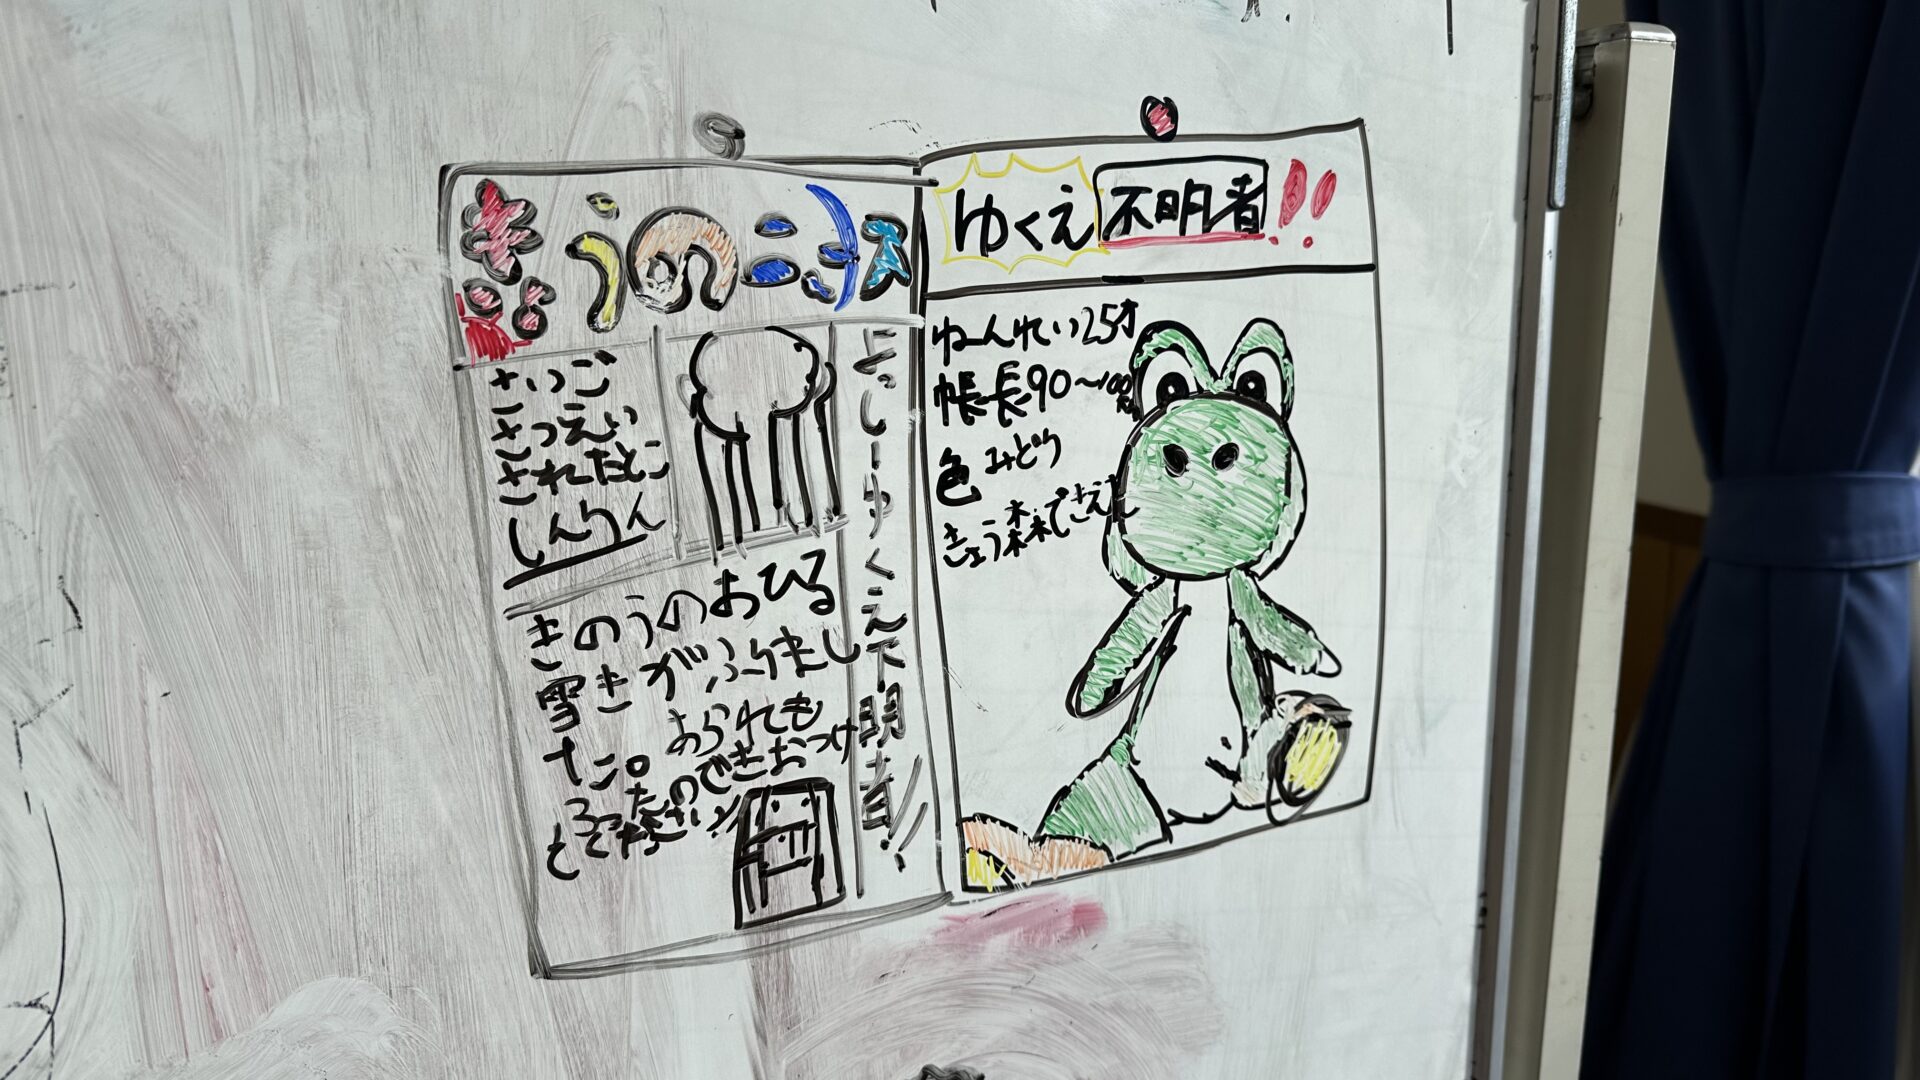 きょうのニュース
よっしーゆくえ不明者!!
さいご
さつえい
されたとこ
しんりん
きのうのおひる
雪きがふりまし
た。あられも
ふったのできおつけ
てください!!
ゆくえ不明者!!
ねんれい25才
帳長90〜100
色 みどり
きょう森できえた